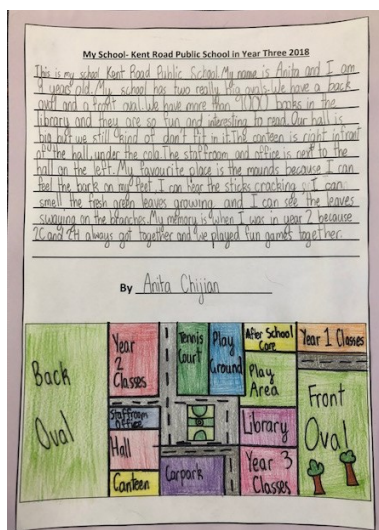 My School- Kent Road Public School in Year Three 2018
This is my school Kent Road Public School. My name is Anita and I am
9 years old. My school has two really big ovals. We have a back
oval and a front oval. We have more than 9000 books in the
library and they are so fun and interesting to read. Our hall is
big but we still kind of don't fit in it. The canteen is right infront
of the hall, under the cola. The staffroom and office is next to the
hall on the left. My favourite place is the mounds because I can
feel the bark on my feet. I can hear the sticks cracking. I can
smell the fresh green leaves growing and I can see the leaves
swaying on the branches. My memory is when I was in year 2 because
2C and 2H always got together and we played fun games together.
By Anita Chijian
Back
Oval
Year
2
Classes
Staffroom
office
Hall
Canteen
Tennis
Court
Play
Ground
Carpark
After School
Care
Play
Area
Library
Year 3
Classes
Year 1 Classes
Front
Oval